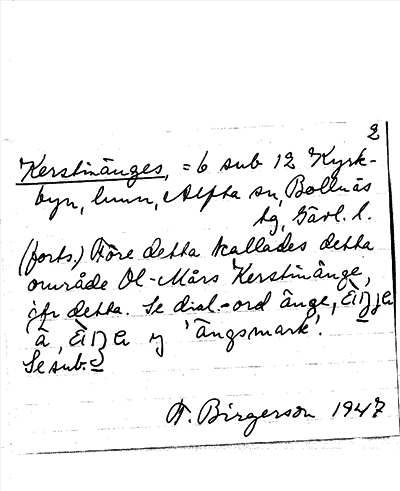 2
Kerstinänges, = b sub 12 Kyrk-
byn, hmn, Alfta sn, Bollnäs
tg, Gävl. l.
(forts.) Före detta kallades detta
område Ol-Mårs Kerstinänge,
jfr detta. Se dial.-ord änge,
'ängsmark'.
Se sub.
A. Birgerson 1947